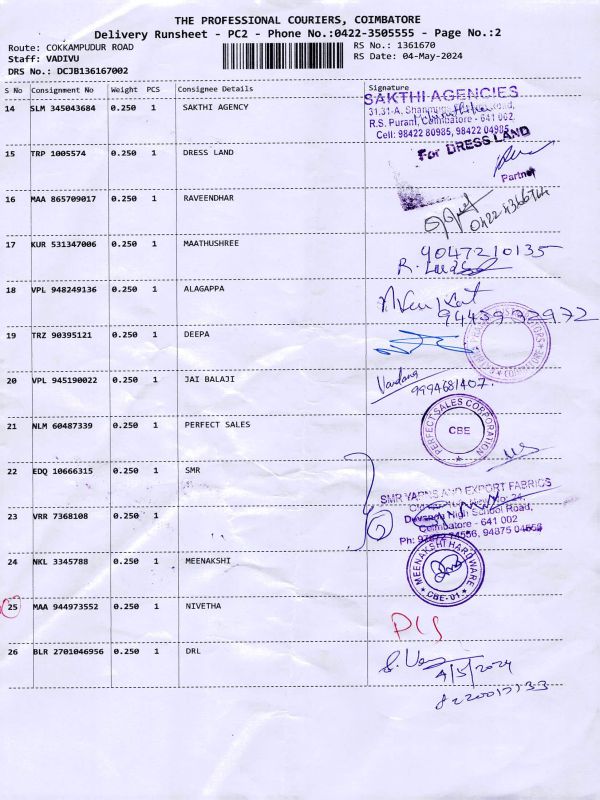 THE PROFESSIONAL COURIERS, COIMBATORE
Delivery Runsheet - PC2 - Phone No.:0422-3505555 - Page No.:2
Route: COKKAMPUDUR ROAD RS No.: 1361670
Staff: VADIVU RS Date: 04-May-2024
DRS No.: DCJB136167002
S No Consignment No Weight PCS Consignee Details Signature
14 SLM 345043684 0.250 1 SAKTHI AGENCY
SAKTHI AGENCIES
31,31-A,
R.S. Puram, Coimbatore - 641 002.
Cell: 98422 80985, 98422 04985
15 TRP 1005574 0.250 1 DRESS LAND
For DRESS LAND
Partner
16 MAA 865709017 0.250 1 RAVEENDHAR
0422 4366744
17 KUR 531347006 0.250 1 MAATHUSHREE
9047210135
18 VPL 948249136 0.250 1 ALAGAPPA
9443932972
19 TRZ 90395121 0.250 1 DEEPA
COIMBATORE
20 VPL 945190022 0.250 1 JAI BALAJI
Vandana
9994681407
21 NLM 60487339 0.250 1 PERFECT SALES
PERFECT SALES CORPORATION
CBE
22 EDQ 10666315 0.250 1 SMR
SMR YARNS AND EXPORT FABRICS
No: 24,
Devanga High School Road,
Coimbatore - 641 002
94875 04556
23 VRR 7368108 0.250 1
24 NKL 3345788 0.250 1 MEENAKSHI
MEENAKSHI HARDWARE
CBE-01
25 MAA 944973552 0.250 1 NIVETHA
26 BLR 2701046956 0.250 1 DRL
4/5/2024